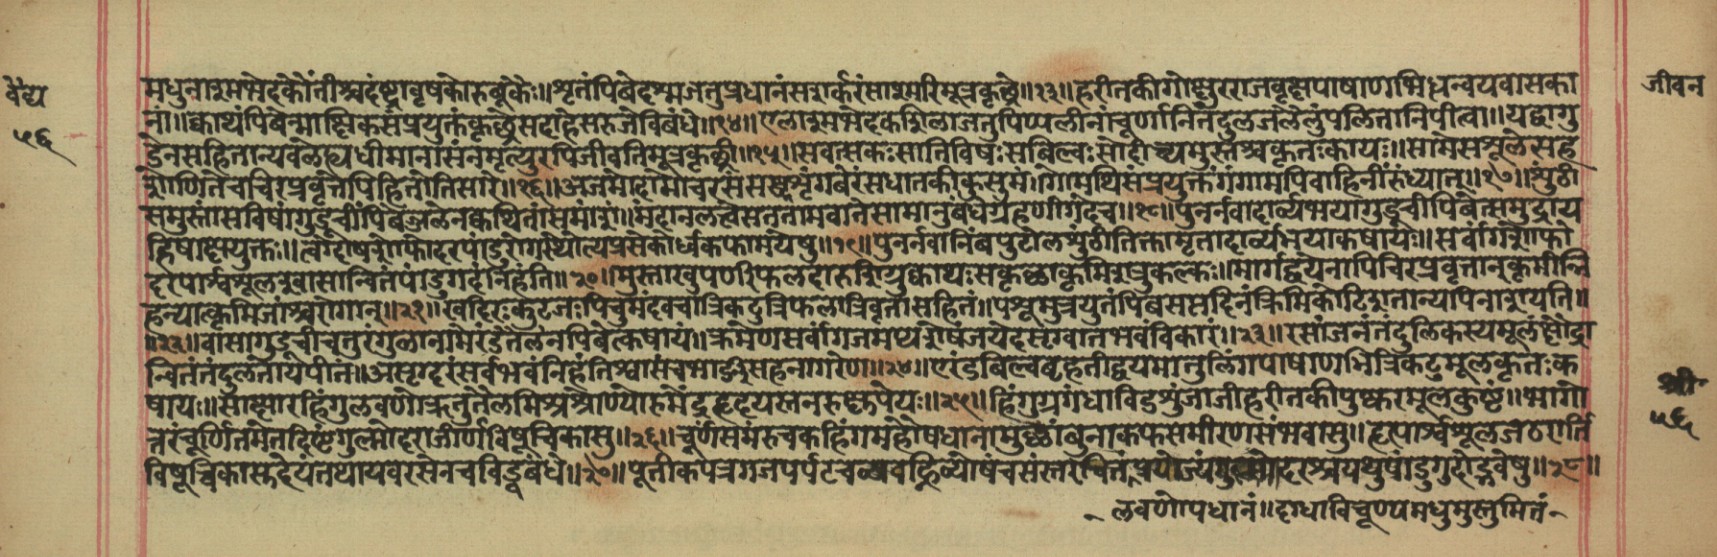 वैद्य
५६
जीवन
मधुनाश्मभेदकौंतीश्वदंष्ट्रावृषकोरुबूकैः॥शृतंपिबेदश्मजतुप्रधानंसशर्करंसाश्मरिमूत्रकृछ्रे॥१३॥हरीतकीगोक्षुरराजवृक्षपाषाणभिद्धन्वयवासका
नां॥क्वाथंपिबेन्माक्षिकसंप्रयुक्तंकृछ्रेसदाहेसरुजेविबंधे॥१४॥एलाश्मभेदकशिलाजतुपिप्पलीनांचूर्णानितंदुलजलैलुंपलितानिपीत्वा॥यद्वागु
डेनसहितान्यवलेह्यधीमानासंनमृत्युरपिजीवतिमूत्रकृछ्री॥१५॥सवत्सकःसातिविषःसबिल्वःसोदीच्यमुस्तश्चकृतःकषायः॥सामेसशूलेसह
शोणितेचचिरप्रवृत्तेपिहितोतिसारे॥१६॥अजमोदामोचरसंसशृंगबेरंसधातकीकुसुमं॥गोमथिसंप्रयुक्तंगंगामपिवाहिनींरुंध्यात्॥१७॥शुंठीं
समुस्तांसविषांगुडूचींपिबेज्जलेनक्वथितांसमांशां॥मंदानलत्वेसततामवातेसामानुबंधेग्रहणीगदेच॥१८॥पुनर्नवादार्व्यभयागुडूचीपिबेत्समूत्रांय
हिषाक्षयुक्तः॥त्वग्दोषशोफोदरपांडुरोगस्थौल्यप्रसेकोर्ध्वकफामयेषु॥१९॥पुनर्नवानिंबपटोलशुंठीतिक्तामृतादार्व्यभयाकषायः॥सर्वांगशोफो
दरपार्श्वशूलश्वासान्वितंपांडुगदंनिहंति॥२०॥मुस्ताखुपर्णीफलदारुशिग्रुक्वाथःसकृष्णाकृमिशत्रुकल्कः॥मार्गद्वयेनापिचिरप्रवृत्तान्कृमीन्नि
हन्यात्कृमिजांश्चरोगान्॥२१॥खदिरःकुटजःपिचुमंदवचात्रिकटुत्रिफलात्रिवृतासहितं॥पशुमूत्रयुतंपिबसप्तदिनंक्रिमिकोटिशतान्यपिनाशयति॥
॥२२॥वासागुडूचीचतुरंगुलानामेरंडतैलेनपिबेत्कषायं॥क्रमेणसर्वांगजमप्यशेषंजयेदसृग्वातभवंविकारं॥२३॥रसांजनंतंदुलिकस्यमूलंक्षौद्रा
न्वितंतंदुलतोयपीतं॥असृग्दरंसर्वभवंनिहंतिश्वासंचभार्ङ्गीसहनागरेण॥२४॥एरंडबिल्वबृहतीद्वयमातुलिंगपाषाणभित्रिकटुमूलकृतःक
षायः॥सक्षारहिंगुलवणोरुबुतैलमिश्रश्रोण्योरुमेंढ्रहृदयस्तनरुक्षुपेयः॥२५॥हिंगुग्रगंधाविडशुंज्यजाजीहरीतकीपुष्करमूलकुष्ठं॥भागो
त्तरंचूर्णितमेतदिष्टंगुल्मोदराजीर्णविषूचिकासु॥२६॥चूर्णंसमंरुचकहिंगमहौषधानांमुष्णांबुनाकफसमीरणसंभवासु॥हृत्पार्श्वशूलजठरार्ति
विषूचिकासुदेयंतथायवरसेनचविड्विबंधे॥२७॥पूतीकपत्रगजपर्पटचव्यवह्निव्योषंचसंस्तरचितं दरश्वयथुपांडुगुदोद्भवेषु॥२८॥
लवणोपधानं॥दग्धाविचूर्ण्यमधुमुस्तुमितं
श्री
५६